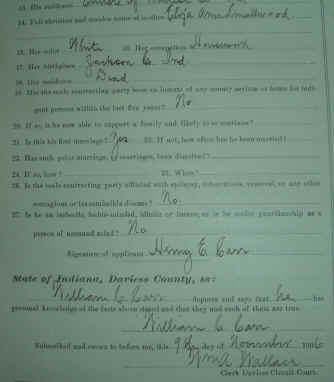 13. His residence
14. Full christian and maiden name of mother Eliza Ann Smallwood
15. Her color White 16. Her occupation Housework
17. Her birthplace Jackson Co. Ind
18. Her residence Dead
19. Has the male contracting party been an inmate of any county asylum or home for indi-
gent persons within the last five years? No
20. If so, is he now able to support a family and likely to so continue?
21. Is this his first marriage? Yes 22. If not, how often has he been married?
23. Has such prior marriage, or marriages, been dissolved?
24. If so, how? 25. When?
26. Is the male contracting party afflicted with epilepsy, tuberculosis, venereal, or any other
contagious or transmissible disease? No
27. Is he an imbecile, feeble-minded, idiotic or insane, or is he under guardianship as a
person of unsound mind? No
Signature of applicant Henry E. Carr
State of Indiana, Daviess County, ss:
William C. Carr deposes and says that he has
personal knowledge of the facts above stated and that they and each of them are true.
William C. Carr
Subscribed and sworn to before me, this 9th day of November 1906
Wm A Wallace
Clerk Daviess Circuit Court.